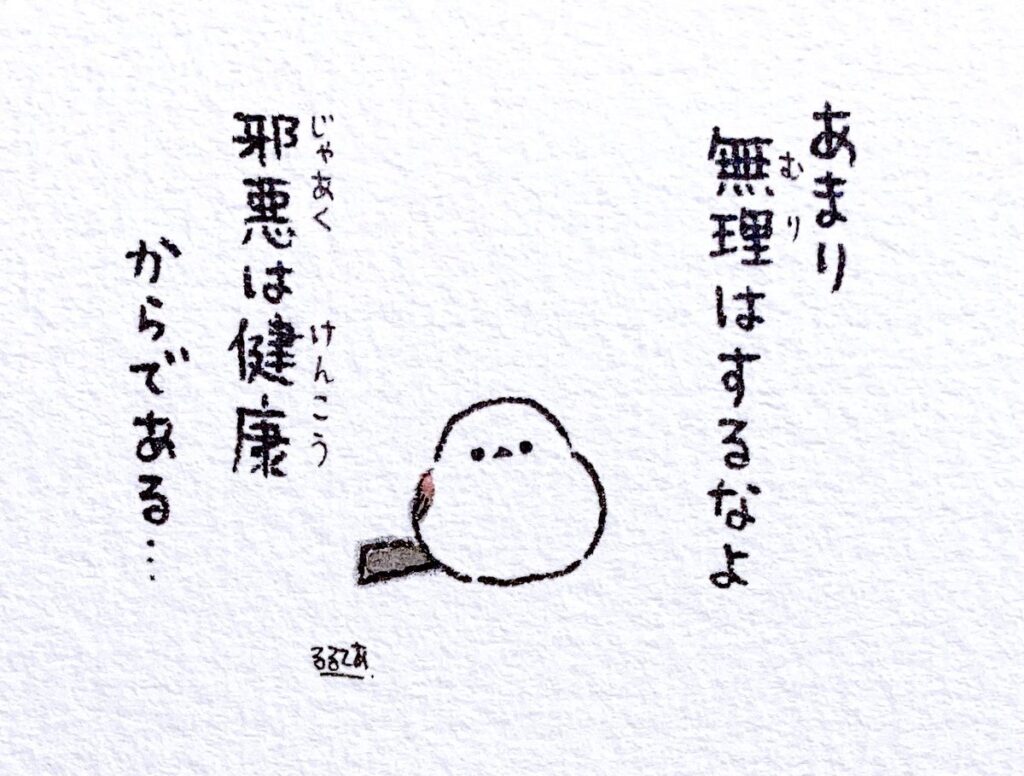 あまり
無理はするなよ
むり
邪悪は健康
じゃあく
けんこう
からである…
るるてあ